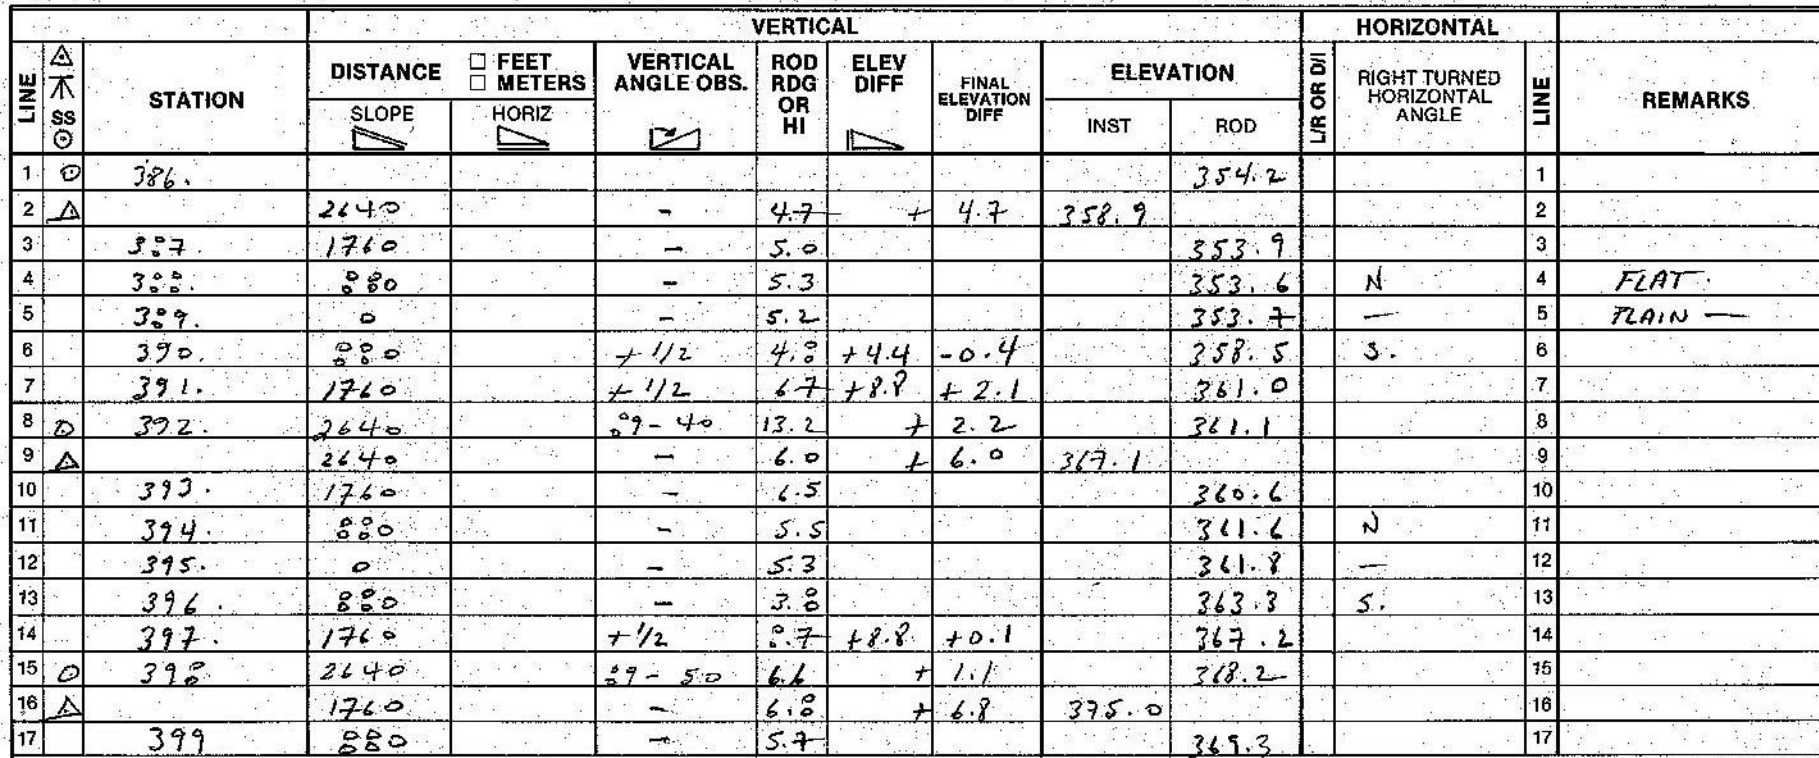 VERTICAL HORIZONTAL
LINE SS STATION DISTANCE □ FEET □ METERS SLOPE HORIZ VERTICAL ANGLE OBS. ROD RDG OR HI ELEV DIFF FINAL ELEVATION DIFF ELEVATION INST ROD L/R OR D/I RIGHT TURNED HORIZONTAL ANGLE LINE REMARKS
1 386. 354.2 1
2 2640 - 4.7 + 4.7 358.9 2
3 387. 1760 - 5.0 353.9 3
4 388. 880 - 5.3 353.6 N 4 FLAT.
5 389. 0 - 5.2 353.7 — 5 PLAIN —
6 390. 880 + 1/2 4.8 +4.4 -0.4 358.5 S. 6
7 391. 1760 + 1/2 6.7 +8.8 + 2.1 361.0 7
8 392. 2640 89-40 13.2 + 2.2 361.1 8
9 2640 - 6.0 + 6.0 367.1 9
10 393. 1760 - 6.5 360.6 10
11 394. 880 - 5.5 361.6 N 11
12 395. 0 - 5.3 361.8 — 12
13 396. 880 - 3.8 363.3 S. 13
14 397. 1760 + 1/2 8.7 +8.8 +0.1 367.2 14
15 398 2640 89-50 6.6 + 1.1 368.2 15
16 1760 - 6.8 + 6.8 375.0 16
17 399 880 - 5.7 369.3 17